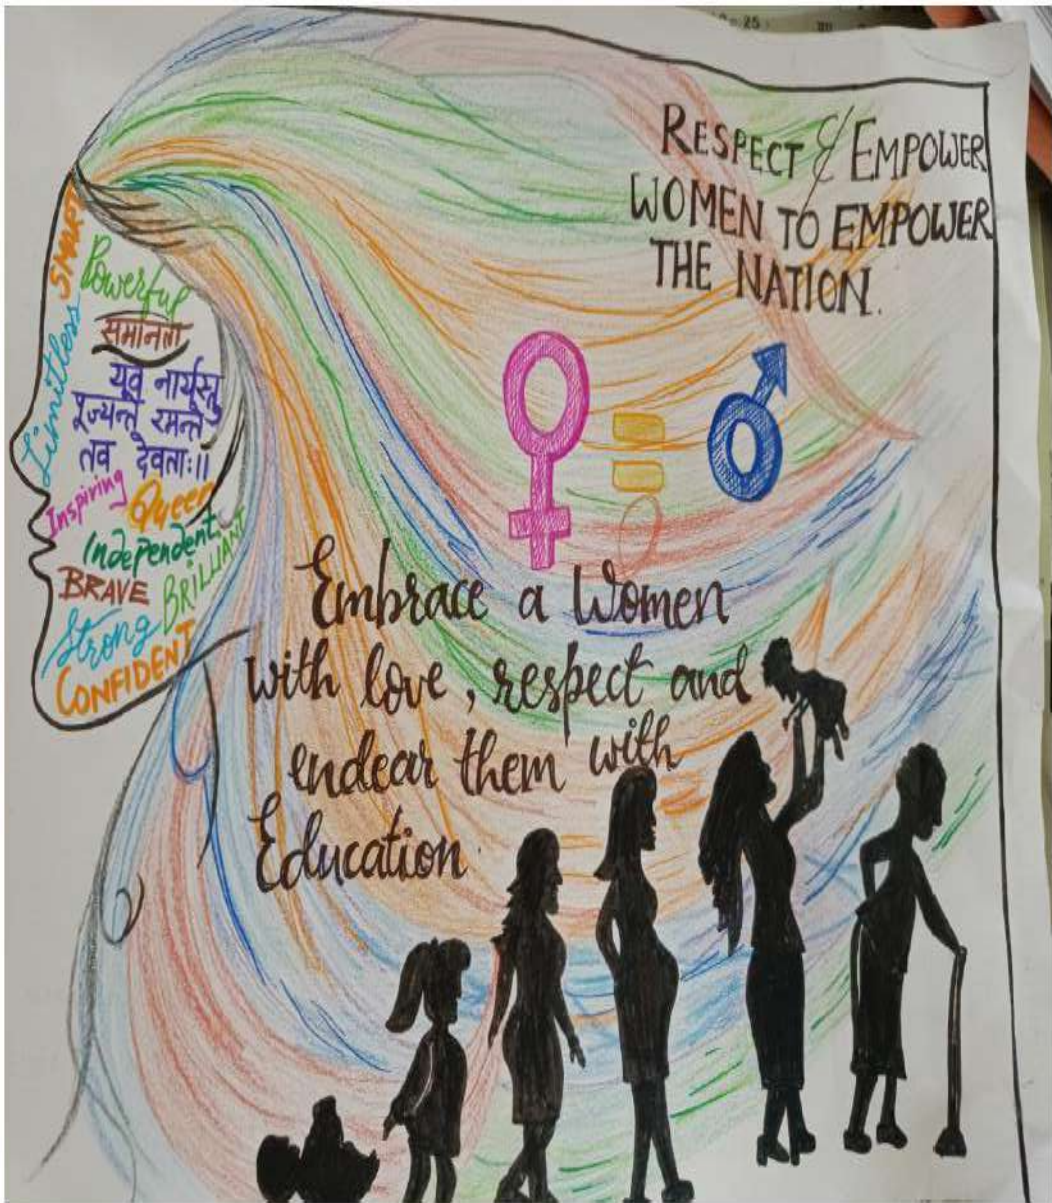 25
RESPECT & EMPOWER
WOMEN TO EMPOWER
THE NATION.
SMART
Powerful
Limitless
समानता
यत्र नार्यस्तु
पूज्यन्ते रमन्ते
तत्र देवताः॥
Inspiring
Queen
Independent
BRAVE
BRILLIANT
Strong
CONFIDENT
Embrace a Women
with love, respect and
endear them with
Education.